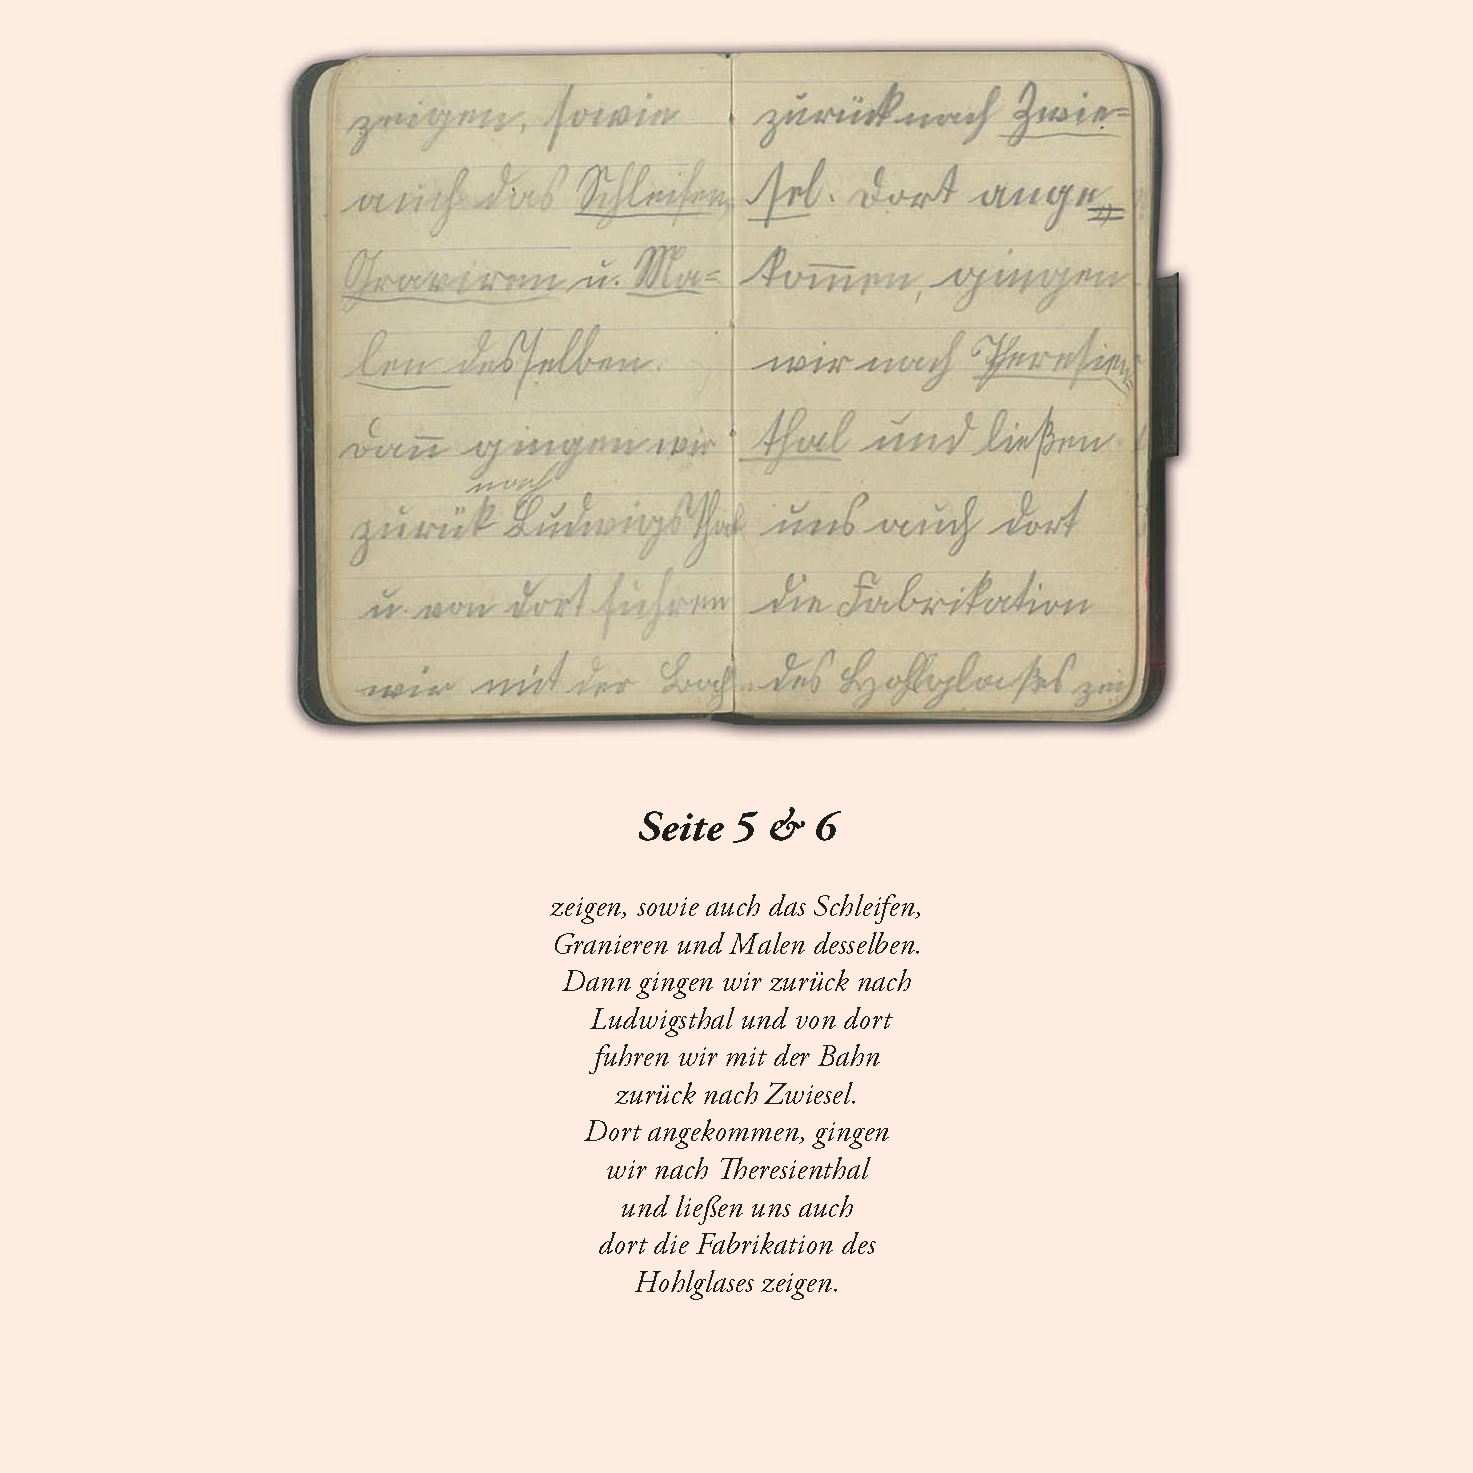 zeigen, sowie
auch das Schleifen,
Graviren u. Ma=
len desselben.
Dan̄ gingen wir
nach
zurük Ludwigsthal
u. von dort fuhren
wir mit der Bah
zurück nach Zwie=
sel. Dort ange=
kom̄en, gingen
wir nach Theresien
thal und ließen
uns auch dort
die Fabrikation
des Hohlglaßes zei
Seite 5 & 6
zeigen, sowie auch das Schleifen,
Granieren und Malen desselben.
Dann gingen wir zurück nach
Ludwigsthal und von dort
fuhren wir mit der Bahn
zurück nach Zwiesel.
Dort angekommen, gingen
wir nach Theresienthal
und ließen uns auch
dort die Fabrikation des
Hohlglases zeigen.